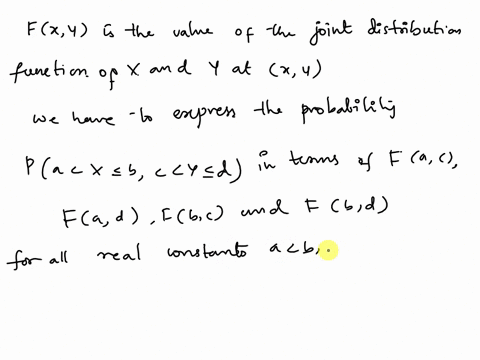 F(x,y) is the value of the joint distribution
function of X and Y at (x,y)
we have to express the probability
P(a < X ≤ b, c < Y ≤ d) in terms of F(a,c),
F(a,d), F(b,c) and F(b,d)
for all real constants a < b,